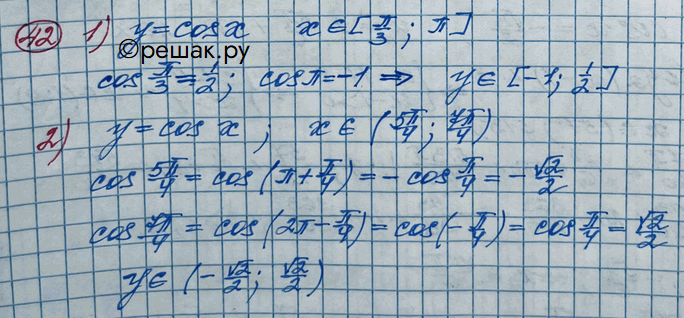 42 1) y = cos x x ∈ [π/3; π]
©решак.ру
cos π/3 = 1/2; cos π = -1 ⇒ y ∈ [-1; 1/2]
2) y = cos x; x ∈ (5π/4; 7π/4)
cos 5π/4 = cos (π + π/4) = - cos π/4 = - √2/2
cos 7π/4 = cos (2π - π/4) = cos (- π/4) = cos π/4 = √2/2
y ∈ (- √2/2; √2/2)